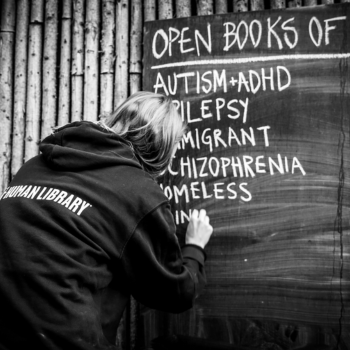 OPEN BOOKS OF
AUTISM+ADHD
EPILEPSY
IMMIGRANT
SCHIZOPHRENIA
HOMELESS
HUMAN LIBRARY